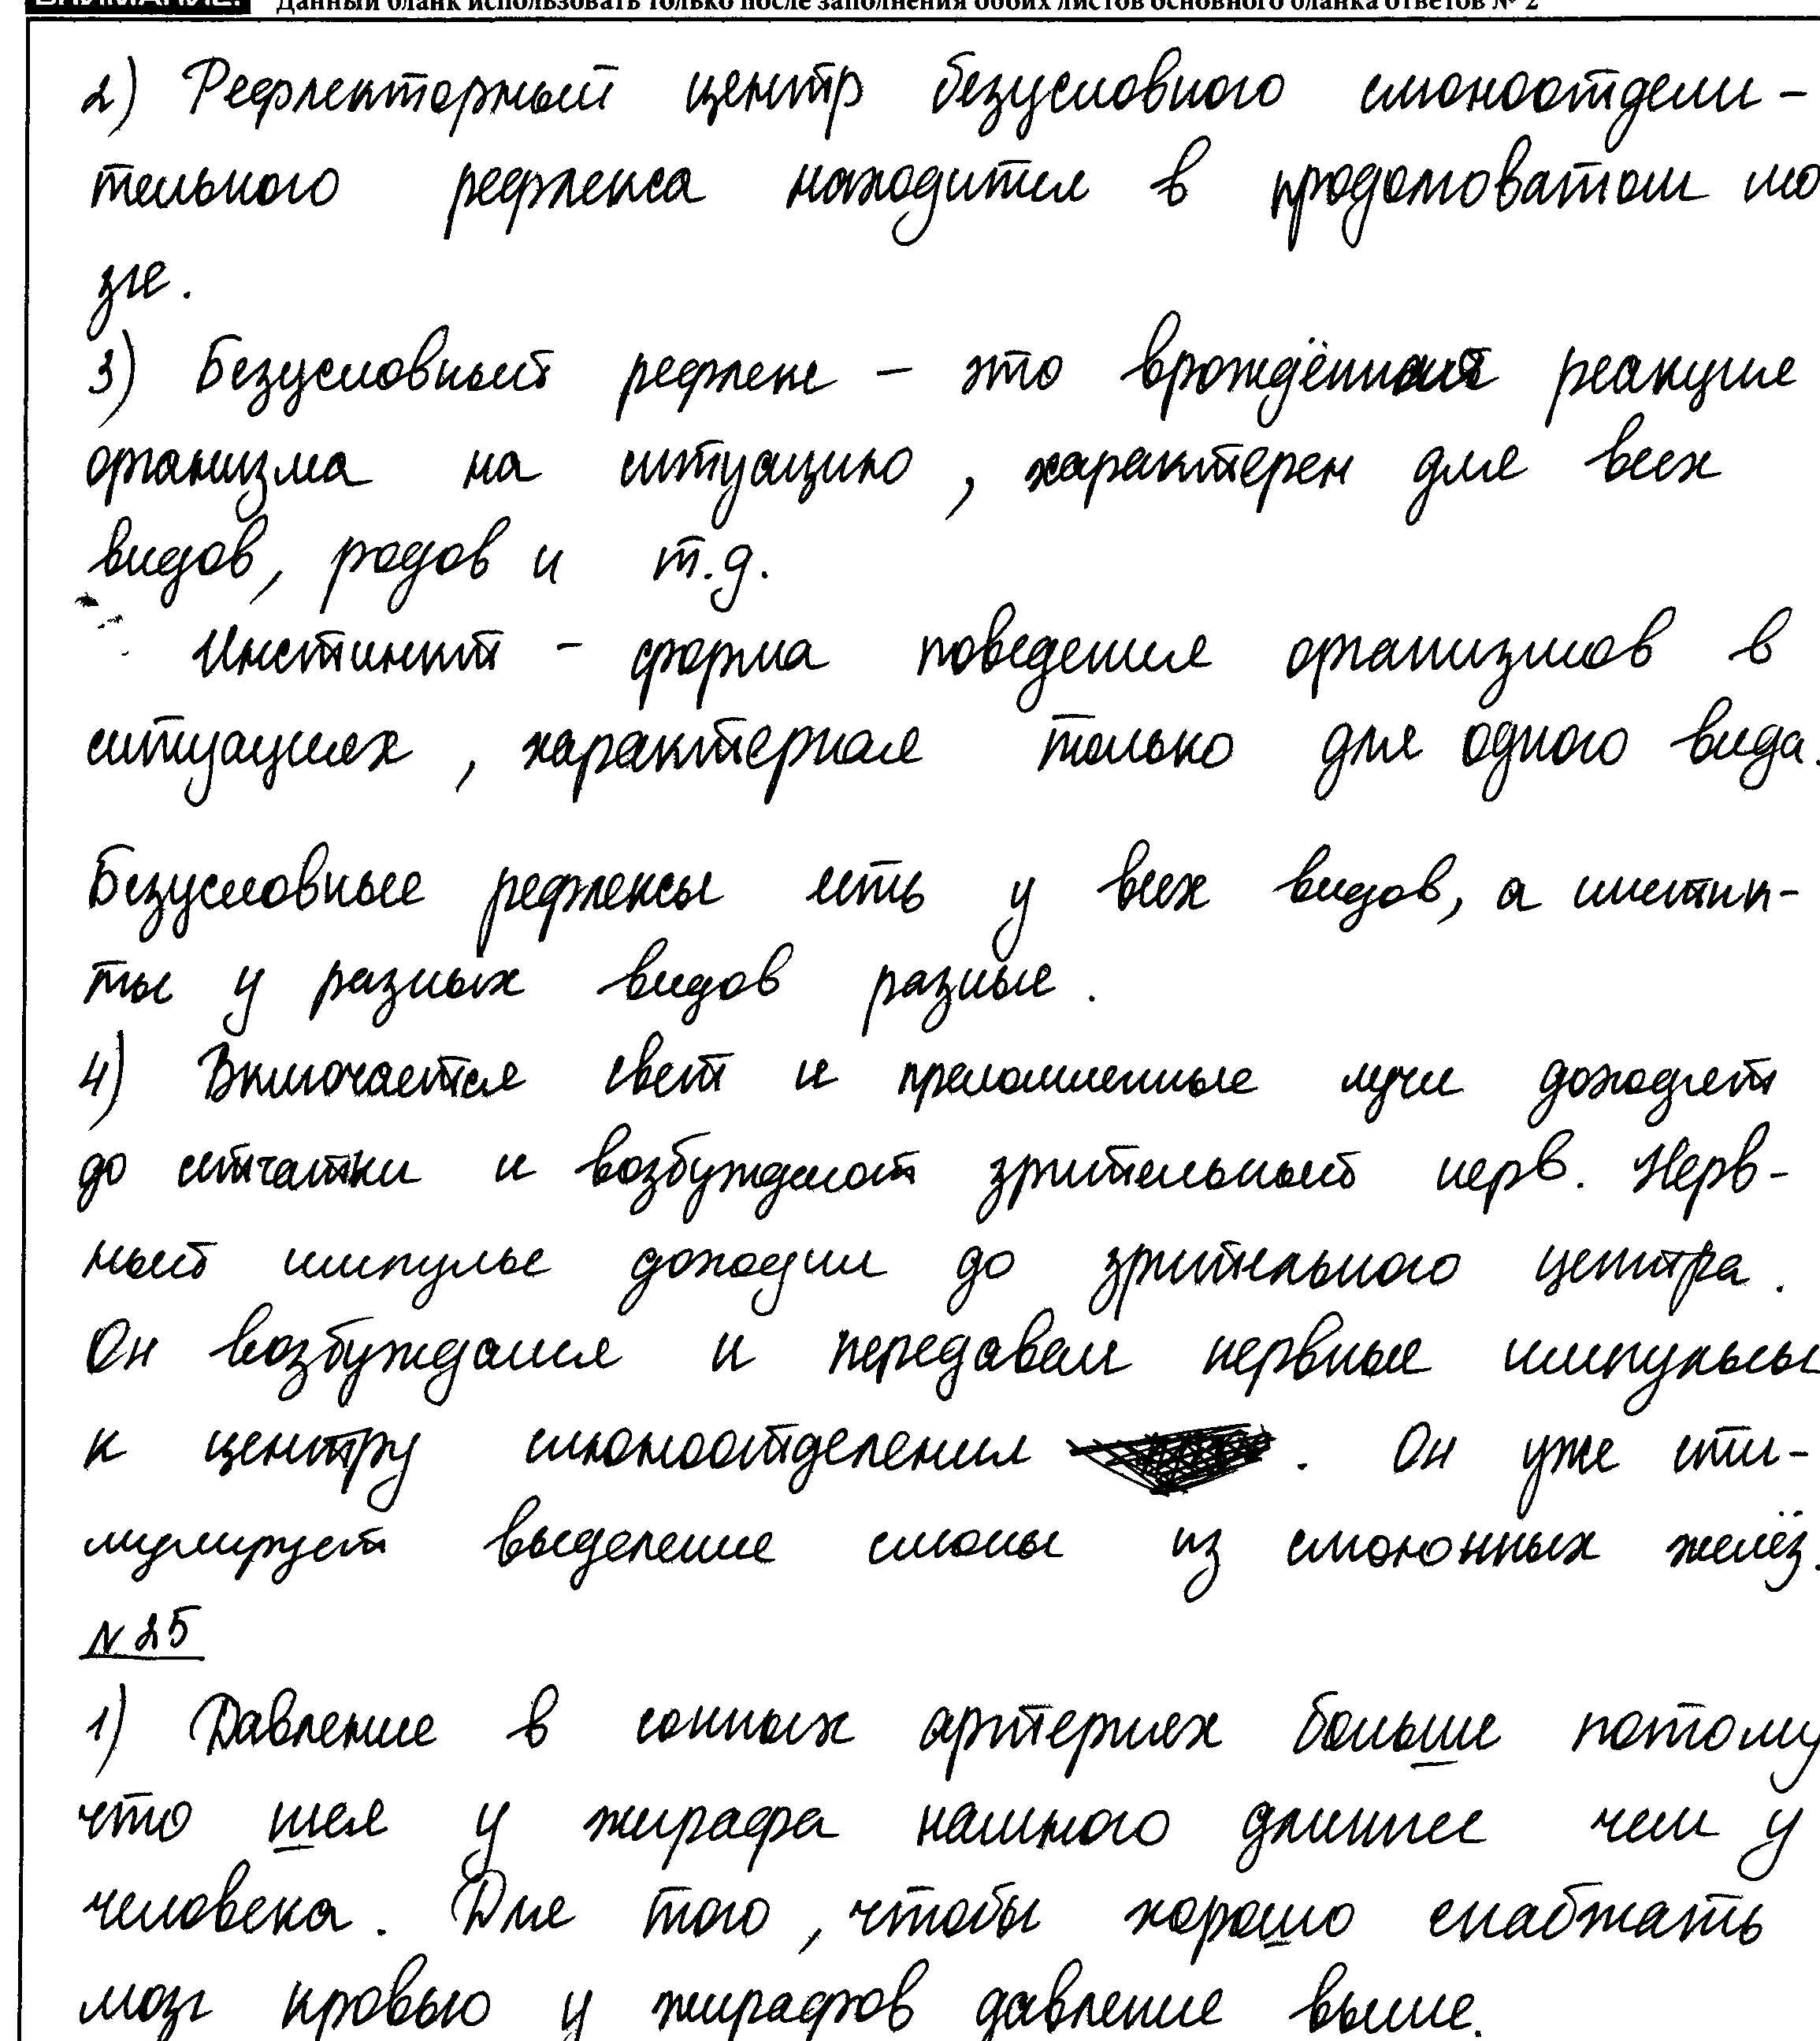 ВНИМАНИЕ! Данный бланк использовать только после заполнения обоих листов основного бланка ответов № 2
2) Рефлекторный центр безусловного слюноотдели-
тельного рефлекса находится в продолговатом мо
зге.
3) Безусловный рефлекс – это врождённая реакция
организма на ситуацию, характерен для всех
видов, родов и т.д.
Инстинкт – форма поведения организмов в
ситуациях, характерная только для одного вида.
Безусловные рефлексы есть у всех видов, а инстин-
ты у разных видов разные.
4) Включается свет и преломленные лучи доходят
до сетчатки и возбуждают зрительный нерв. Нерв-
ный импульс доходил до зрительного центра.
Он возбуждался и передавал нервные импульсы
к центру слюноотделения . Он уже сти-
мулирует выделение слюны из слюнных желёз.
N 25
1) Давление в сонных артериях больше потому
что шея у жирафа намного длиннее чем у
человека. Для того, чтобы хорошо снабжать
мозг кровью у жирафов давление выше.